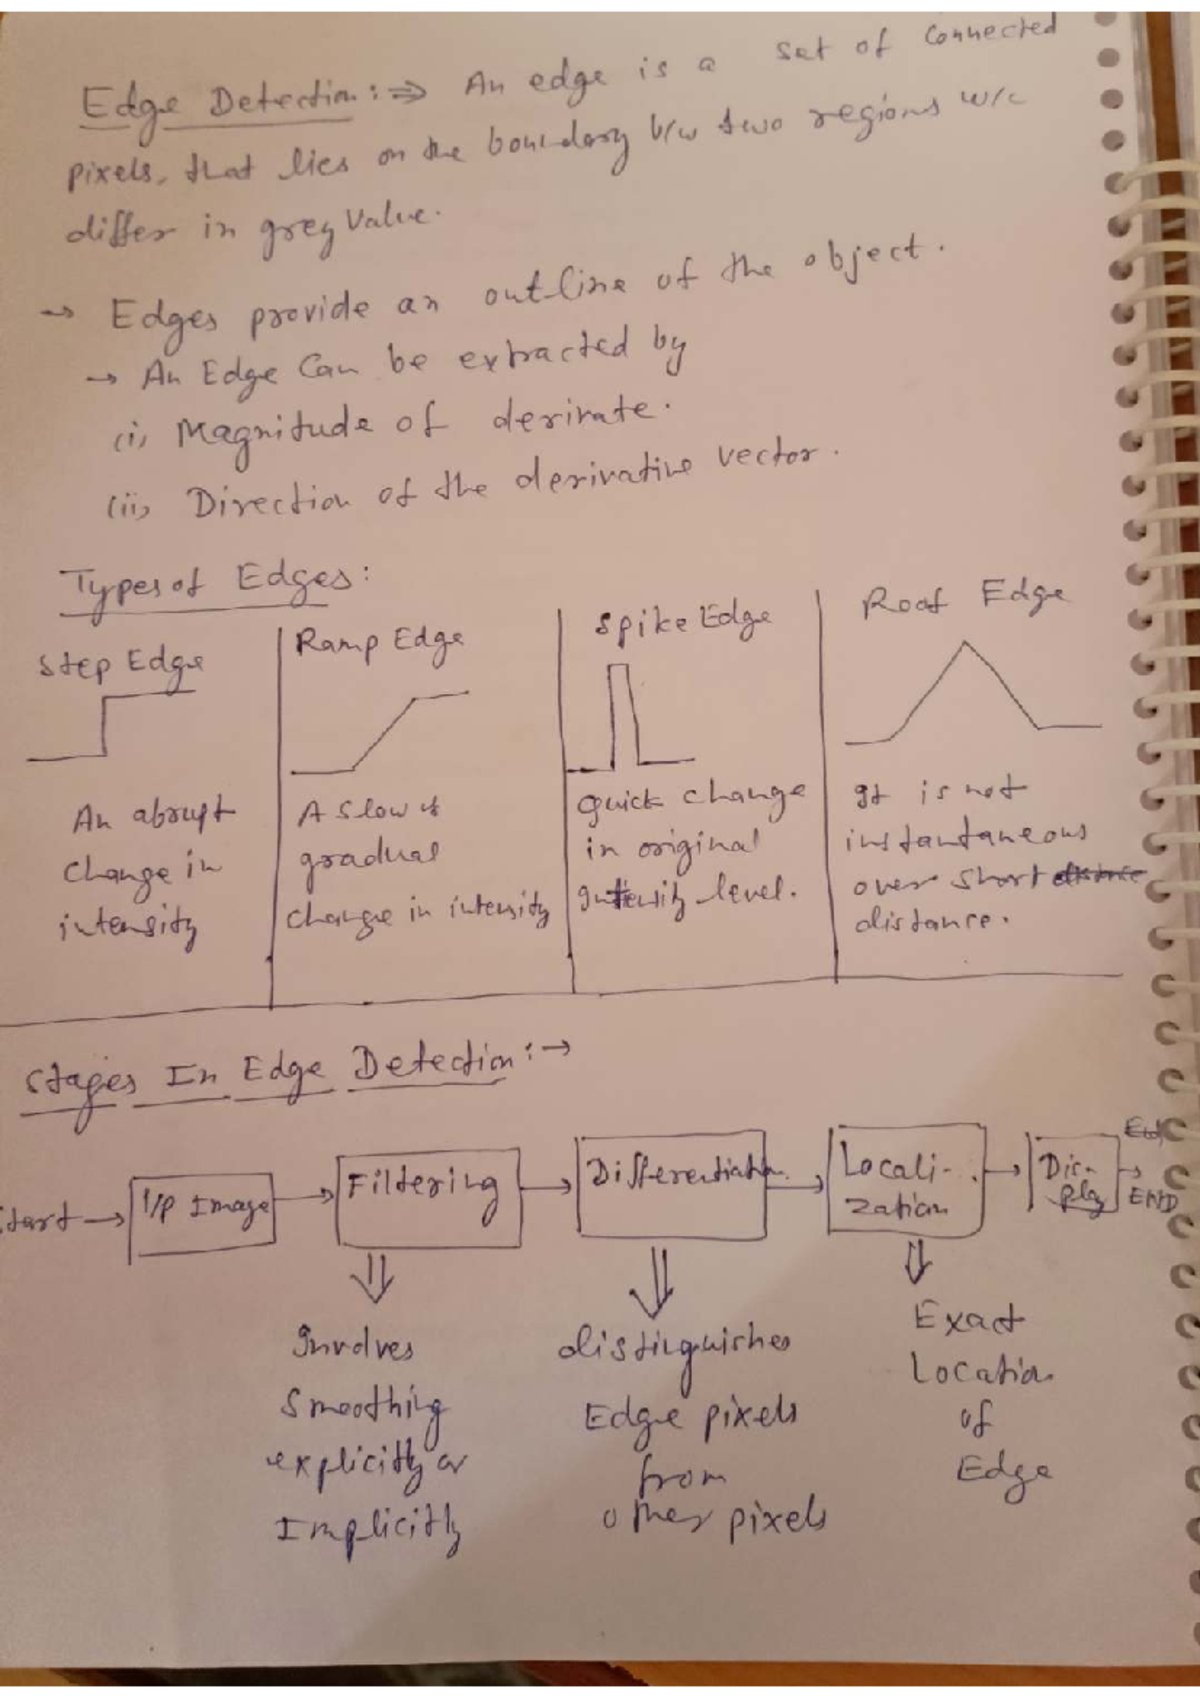 Edge Detection :⇒ An edge is a set of connected
pixels, that lies on the boundary b/w two regions w/c
differ in grey value.
→ Edges provide an outline of the object.
→ An Edge Can be extracted by
(i) Magnitude of derivate.
(ii) Direction of the derivative vector.
Types of Edges:
Step Edge
An abrupt
Change in
intensity
Ramp Edge
A Slow &
gradual
Change in intensity
Spike Edge
Quick change
in original
Intensity level.
Roof Edge
It is not
instantaneous
over short distance
distance.
Stages In Edge Detection :→
Start → I/P Image → Filtering → Differentiation → Locali-zation → Disply → END
Involves
Smoothing
explicitly or
Implicitly
distinguishes
Edge pixels
from
other pixels
Exact
Location
of
Edge